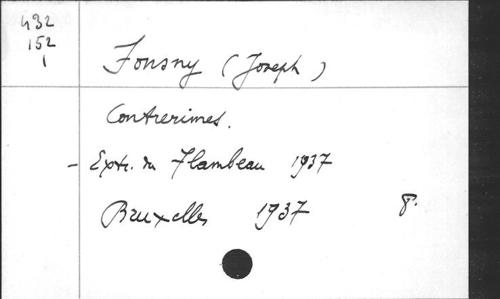 432
152
1
Fonsny (Joseph)
Contrerimes.
- Extr. du Flambeau 1937
Bruxelles 1937 8°.